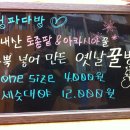 청파다방
국내산 토종팥 & 아카시아꿀
듬뿍 넣어 만든 옛날 꿀빙
one size 4,000원
세숫대야 12,000원